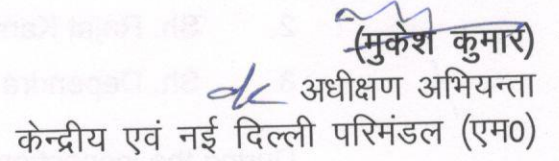 (मुकेश कुमार)
अधीक्षण अभियन्ता
केन्द्रीय एवं नई दिल्ली परिमंडल (एम0)